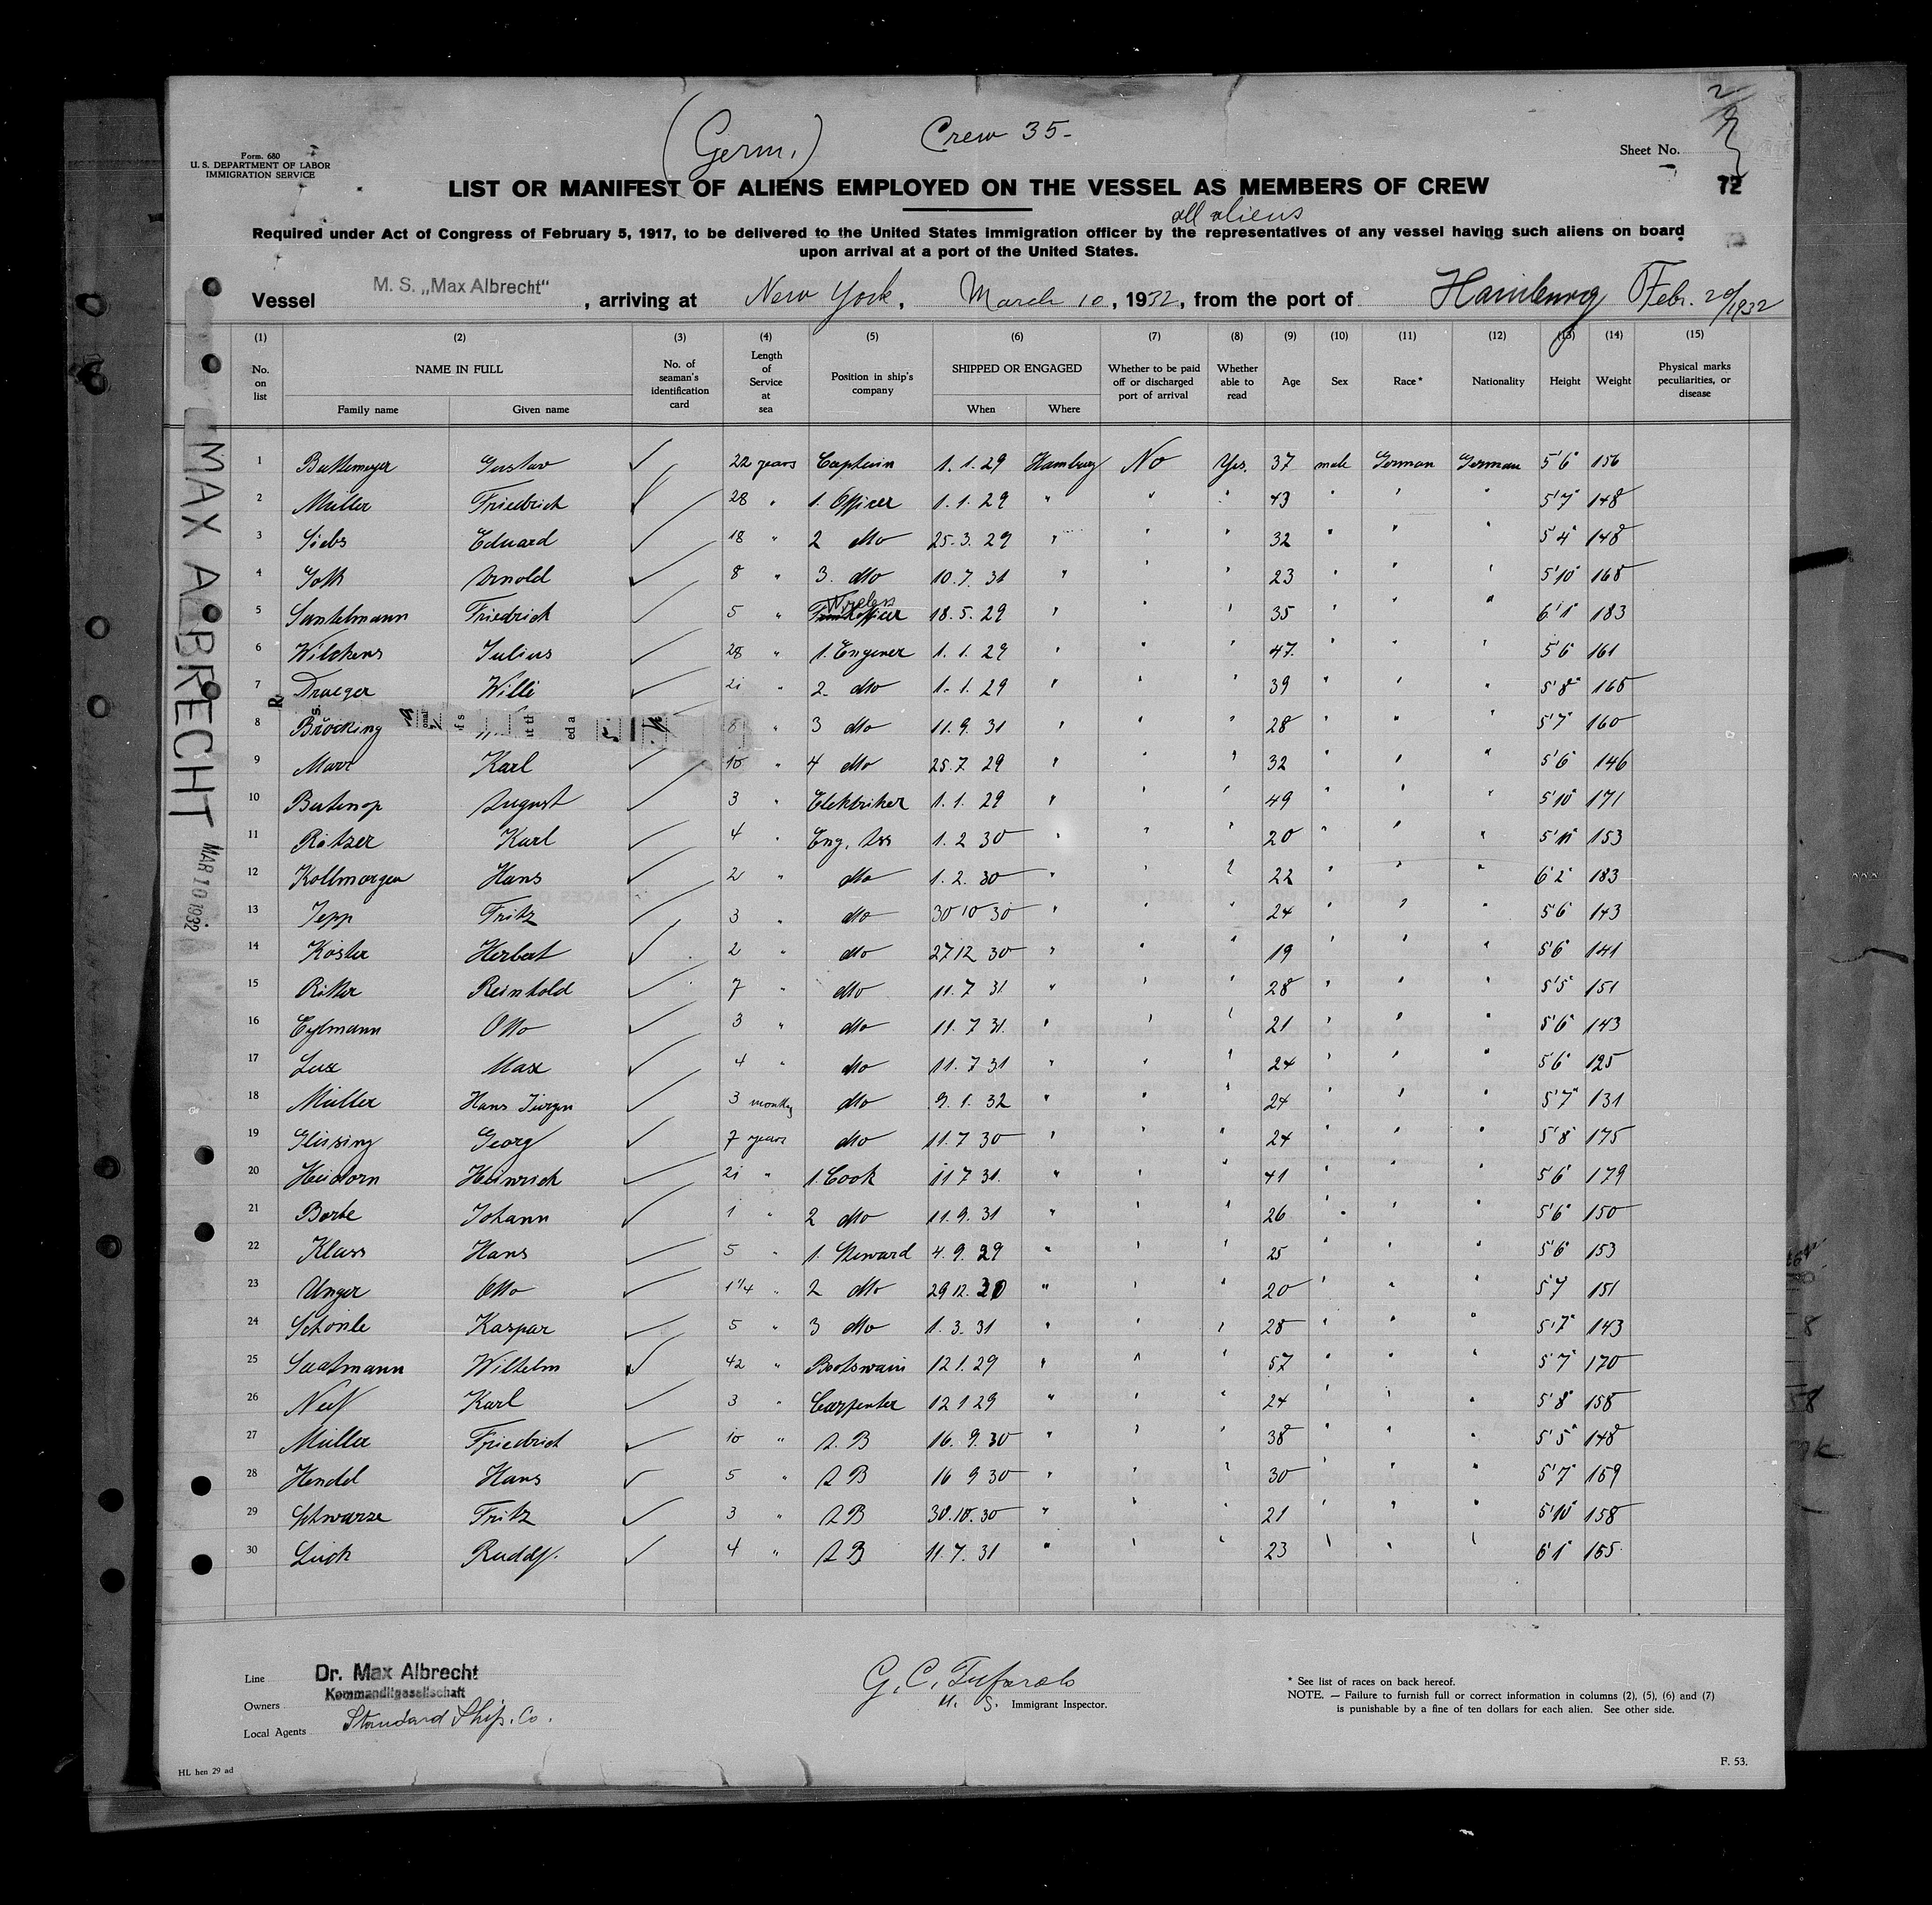 (Germ.) Crew 35-
Form. 680
U. S. DEPARTMENT OF LABOR
IMMIGRATION SERVICE
Sheet No.
72
LIST OR MANIFEST OF ALIENS EMPLOYED ON THE VESSEL AS MEMBERS OF CREW
all aliens
Required under Act of Congress of February 5, 1917, to be delivered to the United States immigration officer by the representatives of any vessel having such aliens on board
upon arrival at a port of the United States.
Vessel M. S. „Max Albrecht“, arriving at New York, March 10, 1932, from the port of Hamburg Febr. 20/1932
(1) (2) (3) (4) (5) (6) (7) (8) (9) (10) (11) (12) (13) (14) (15)
No. on list NAME IN FULL Family name Given name No. of seaman's identification card Length of Service at sea Position in ship's company SHIPPED OR ENGAGED When Where Whether to be paid off or discharged port of arrival Whether able to read Age Sex Race* Nationality Height Weight Physical marks peculiarities, or disease
1 Gustav ✓ 22 years Captain 1.1.29 Hamburg No Yes. 37 male German German 5'6" 156
2 Müller Friedrich ✓ 28 " 1. Officer 1.1.29 " " " 43 " " " 5'7" 148
3 Siebs Eduard ✓ 18 " 2 dtto 25.3.29 " " " 32 " " " 5'4" 148
4 Arnold ✓ 8 " 3. dtto 10.7.31 " " " 23 " " " 5'10" 168
5 Santelmann Friedrich ✓ 5 " Wireless officer 18.5.29 " " " 35 " " " 6'1" 183
6 Wilckens Julius ✓ 28 " 1. Engineer 1.1.29 " " " 47. " " " 5'6" 161
7 Draeger Willi ✓ 21 " 2. dtto 1.1.29 " " " 39 " " " 5'8" 165
8 Bröcking 8 " 3 dtto 11.9.31 " " " 28 " " " 5'7" 160
9 Marx Karl ✓ 10 " 4 dtto 25.7.29 " " " 32 " " " 5'6" 146
10 Butenop August ✓ 3 " Elektriker 1.1.29 " " " 49 " " " 5'10" 171
11 Rötzer Karl ✓ 4 " Eng. Ass 1.2.30 " " " 20 " " " 5'11" 153
12 Kollmorgen Hans ✓ 2 " dtto 1.2.30 " " " 22 " " " 6'2" 183
13 Jepp Fritz ✓ 3 " dtto 30 10 30 " " " 24 " " " 5'6 143
14 Köster Herbert ✓ 2 " dtto 27 12 30 " " " 19 " " " 5'6" 141
15 Ritter Reinhold ✓ 7 " dtto 11.7 31 " " " 28 " " " 5'5" 151
16 Eylmann Otto ✓ 3 " dtto 11.7 31. " " " 21 " " " 5'6" 143
17 Lux Max ✓ 4 " dtto 11.7 31 " " " 24 " " " 5'6" 125
18 Müller Hans Jürgen ✓ 3 months dtto 9.1.32 " " " 24 " " " 5'7" 131
19 Glissing Georg ✓ 7 years dtto 11.7 30 " " " 24 " " " 5'8" 175
20 Heidorn Heinrich ✓ 21 " 1. Cook 11 7 31. " " " 41 " " " 5'6" 179
21 Borbe Johann ✓ 1 " 2 dtto 11.9.31 " " " 26 " " " 5'6" 150
22 Klass Hans ✓ 5 " 1. Steward 4.9.29 " " " 25 " " " 5'6" 153
23 Unger Otto ✓ 1 1/4 " 2 dtto 29 12. 30 " " " 20 " " " 5'7 151
24 Schönle Kaspar ✓ 5 " 3 dtto 1.3.31 " " " 28 " " " 5'7" 143
25 Saatmann Wilhelm ✓ 42 " Bootswain 12 1.29 " " " 57 " " " 5'7" 170
26 Karl ✓ 3 " Carpenter 12 1 29 " " " 24 " " " 5'8" 158
27 Müller Friedrich ✓ 10 " A.B 16.9.30 " " " 38 " " " 5'5" 148
28 Hendel Hans ✓ 5 " AB 16 9 30 " " " 30 " " " 5'7" 159
29 Schwarze Fritz ✓ 3 " AB 30.10.30 " " " 21 " " " 5'10" 158
30 Lück Rudolf. ✓ 4 " AB 11.7.31 " " " 23 " " " 6'1" 165.
MAX ALBRECHT MAR 10 1932
Line Dr. Max Albrecht
Owners Kommanditgesellschaft
Local Agents Standard Ship. Co.
G. C.
U. S. Immigrant Inspector.
* See list of races on back hereof.
NOTE. — Failure to furnish full or correct information in columns (2), (5), (6) and (7)
is punishable by a fine of ten dollars for each alien. See other side.
HL hen 29 ad
F. 53.